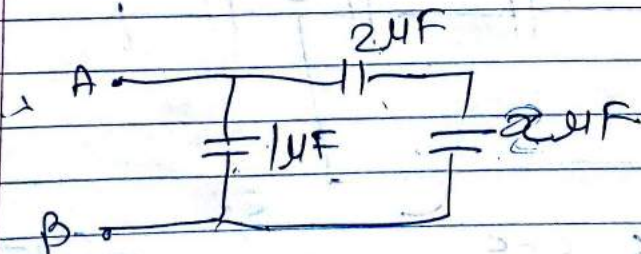 2μF
A
1μF
2μF
B